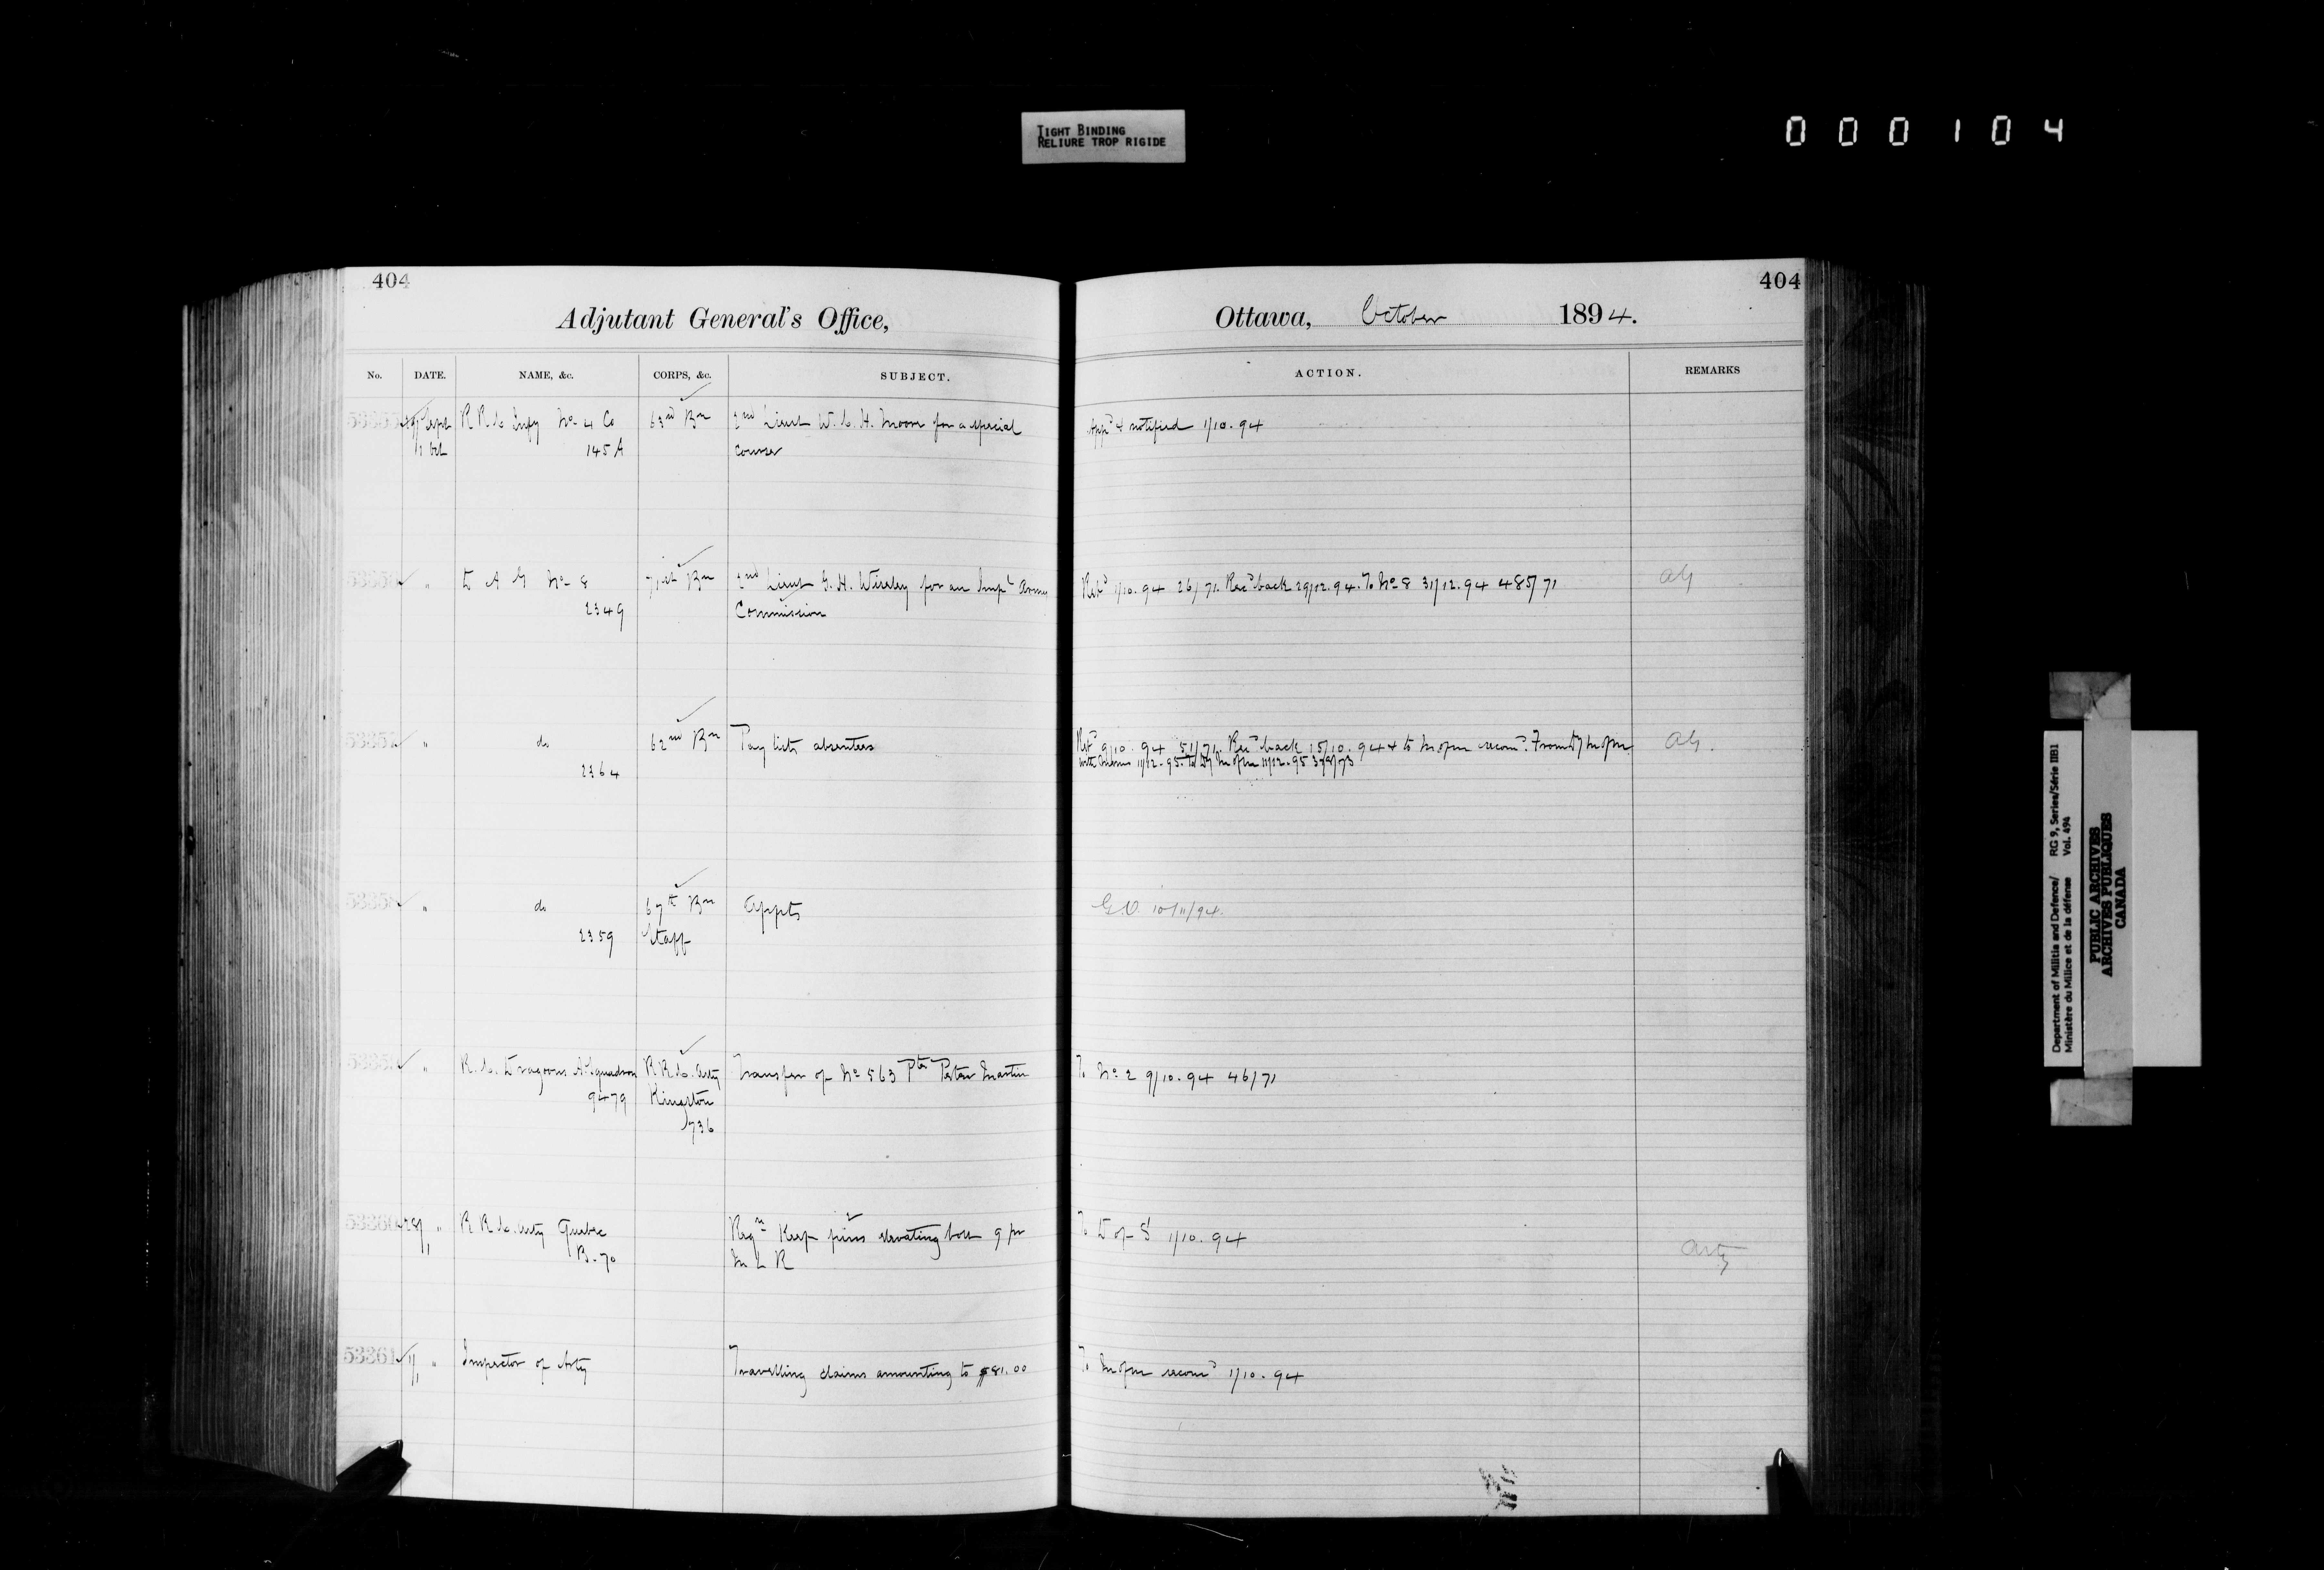 TIGHT BINDING
RELIURE TROP RIGIDE
000104
404
Adjutant General's Office,
No. DATE. NAME, &c. CORPS, &c. SUBJECT.
29/ Sept R R C Infy No 4 Co 63rd Bn 2nd Lieut W. C. H. Moore for a special
1/ Oct 145 A course
53356 " D A G No 8 71st Bn 2nd Lieut G. H. for an Impl Army
2349 Commission
53357 " do 62nd Bn Pay lists absentees
2364
53358 " do 67th Bn Appts
2359 Staff
53359 " R. C. Dragoons A Squadron R R C. Arty Transfer of No 563 Pte Peter Martin
9479 Kingston
736
53360 28/ " R R C. Arty Quebec Reqn Keep pins elevating 9 pr
B. 70 M L R
53361 1/ " Inspector of Arty Travelling claims amounting to $81.00
404
Ottawa, October 1894.
ACTION. REMARKS
Appd & notified 1/10.94
Retd 1/10.94 26/71. Recd back 29/12.94. To No 8 31/12.94 485/71 AG
Retd 9/10.94 51/71. Recd back 15/10.94 & to M of M recomd. From D/ M of M AG.
11/12.95. To D/ M of M 11/12.95 378/73
G.O. 10/11/94.
To No 2 9/10.94 46/71
To D of S 1/10.94 Arty
To M of M recomd 1/10.94
Department of Militia and Defence/ RG 9, Series/Série IIB1
Ministère du Milice et de la défense Vol. 494
PUBLIC ARCHIVES
ARCHIVES PUBLIQUES
CANADA